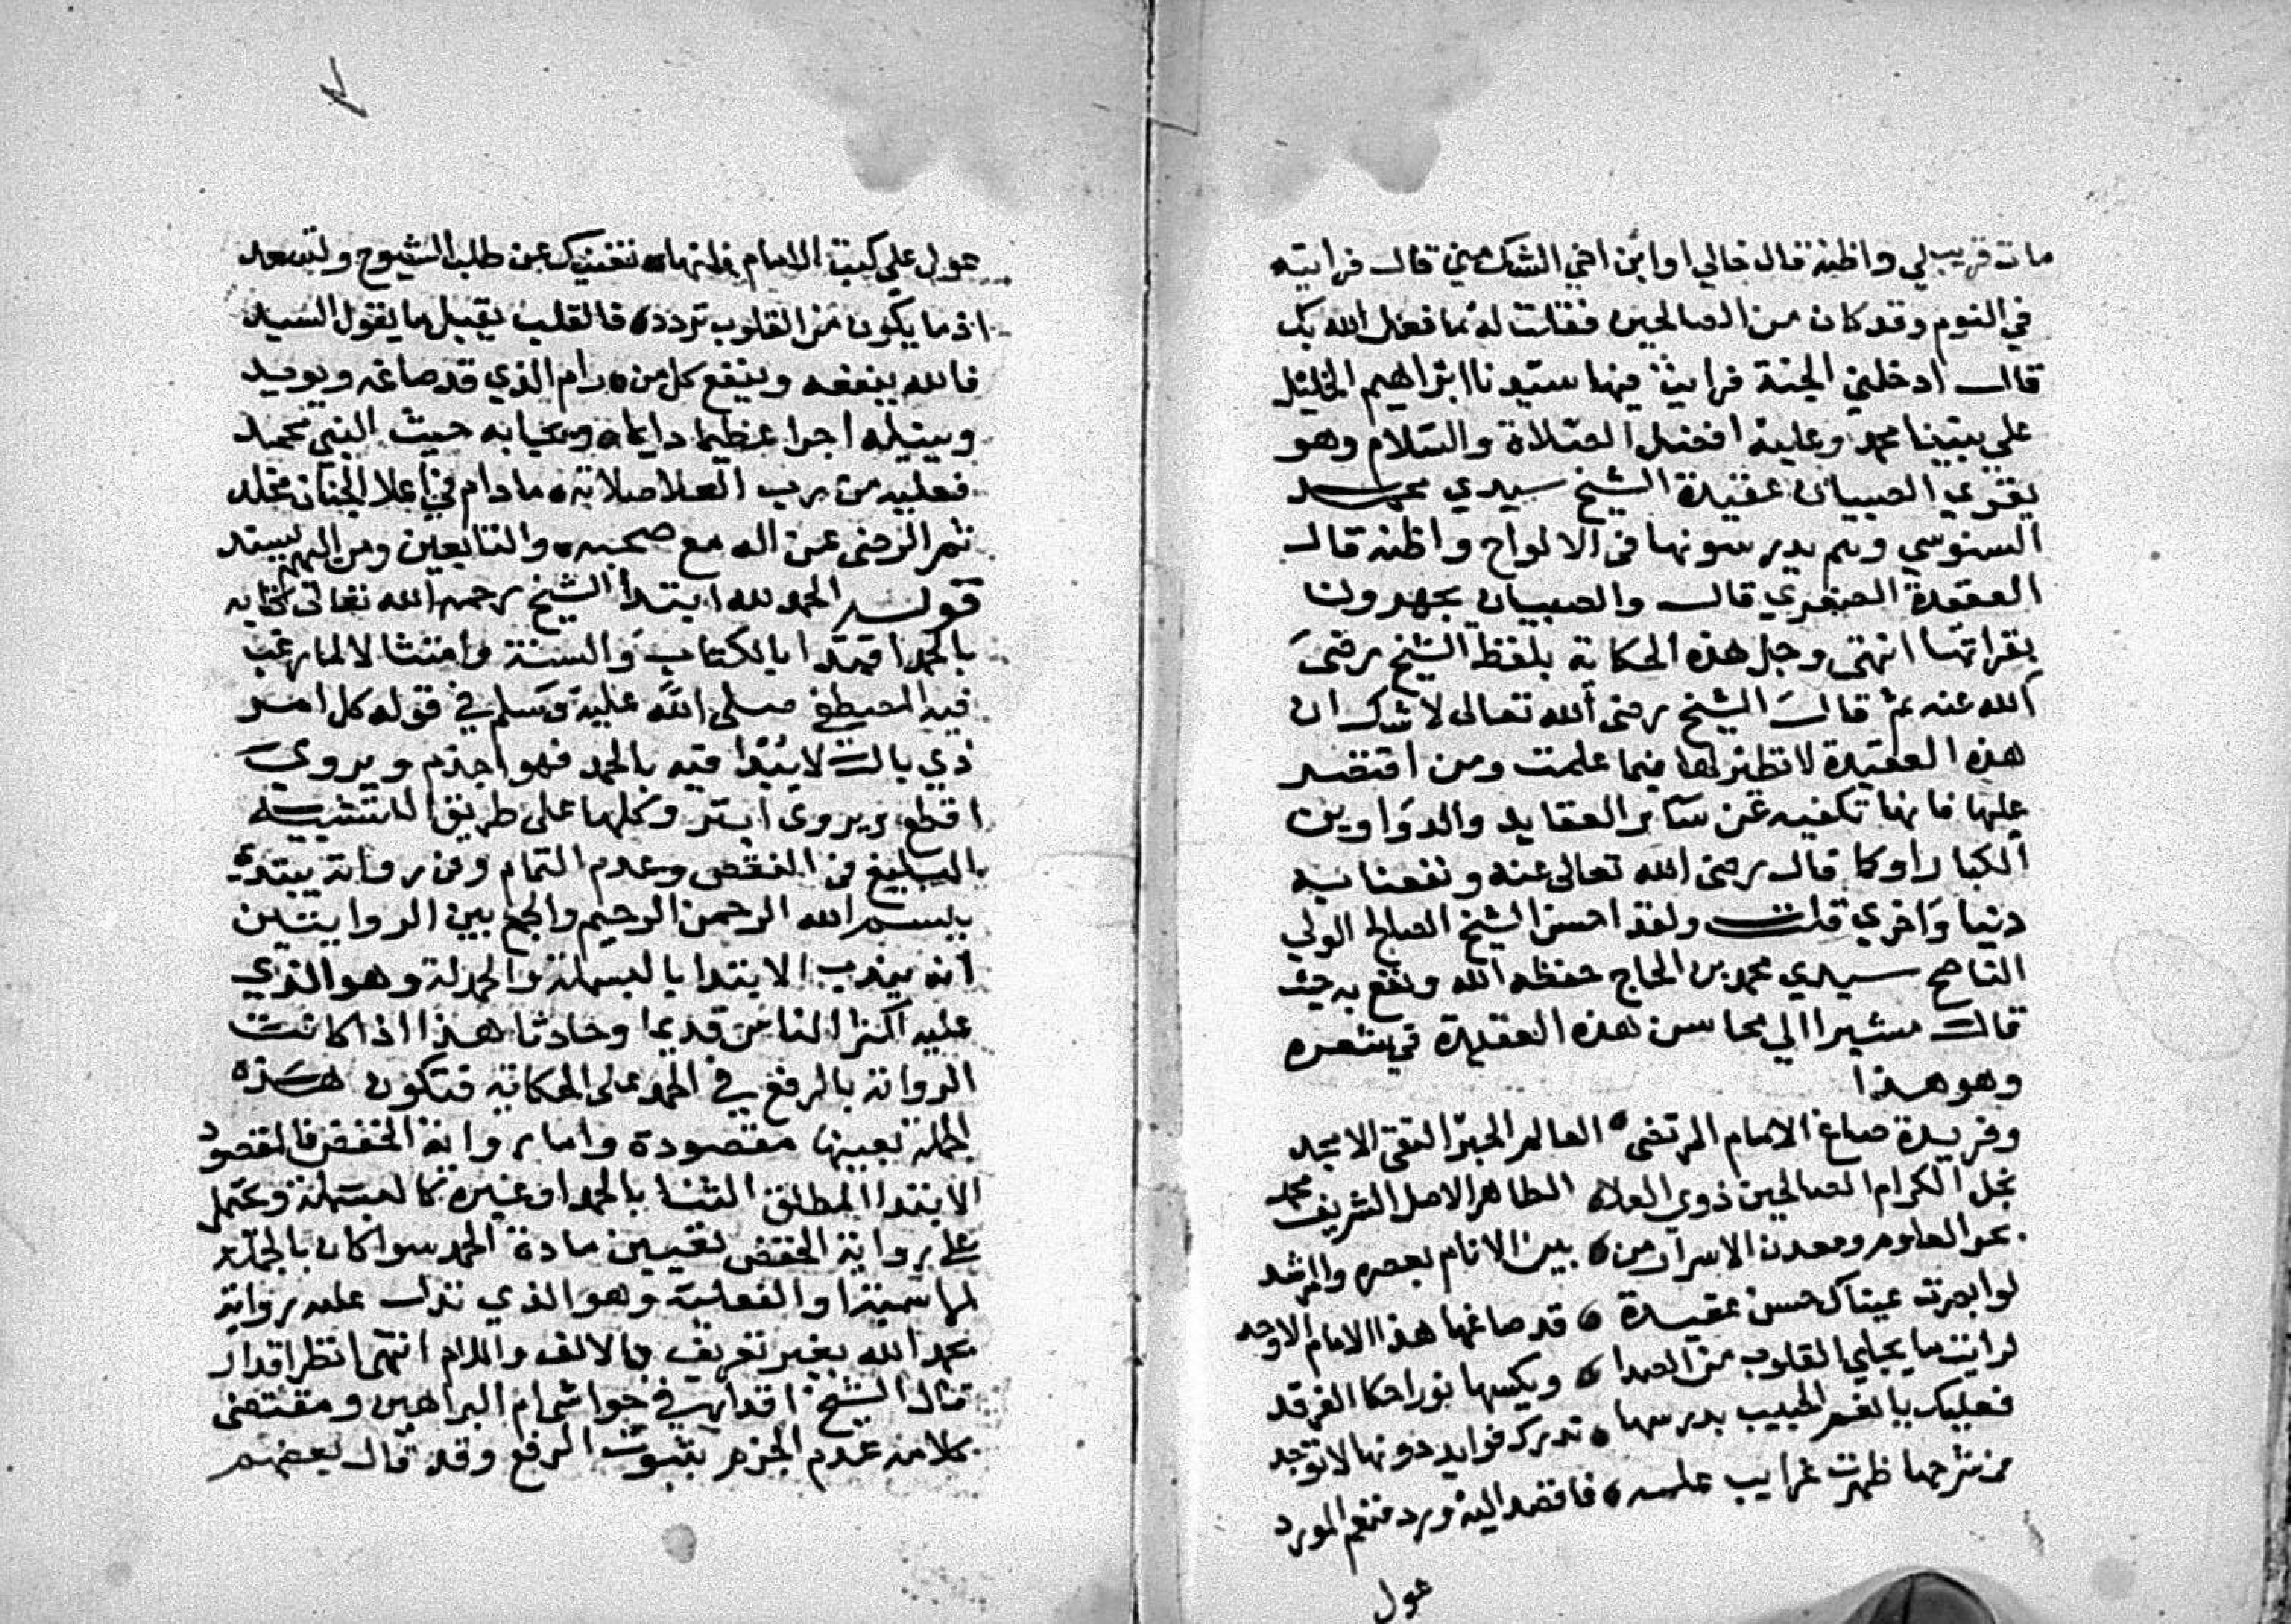 مات قريب لي واظنه قال خالي او ابن اخي الشك مني قال فرايته
في النوم وقد كان من الصالحين فقلت له ما فعل الله بك
قال ادخلني الجنة فرايت فيها سيدنا ابراهيم الخليل
على نبينا محمد وعليه افضل الصلاة والسلام وهو
يقري الصبيان عقيدة الشيخ سيدي محمد
السنوسي وهم يدرسونها في الالواح واظنه قال
العقيدة الصغري قال والصبيان يجهرون
بقراتها انتهى وجل هذه الحكاية بلفظ الشيخ رضي
الله عنه ثم قال الشيخ رضي الله تعالى لا شك ان
هذه العقيدة لا نظير لها فيما علمت ومن اقتصر
عليها فانها تكفيه عن ساير العقايد والدواوين
الكبار او كما قال رضي الله تعالى عنه ونفعنا به
دنيا واخري قلت ولقد احسن الشيخ الصالح الولي
الناصح سيدي محمد بن الحاج حفظه الله ونفع به حيث
قال مشيرا الي محاسن هذه العقيدة في شعره
وهو هذا
وفريدة صاغ الامام المرتضى العالم الحبر التقي الامجد
نجل الكرام الصالحين ذوي العلا الطاهر الاصل الشريف محمد
بحر العلوم ومعدن الاسرار من بين الانام بعصره والمرشد
لو ابصرت عيناك حسن عقيدة قد صاغها هذا الامام الاوحد
لرايت ما يجلي القلوب من الصدا ويكسها نورا حكا الفرقد
فعليك يا الحبيب بدرسها تدرك فوايد دونها لا توجد
من شرحها ظهرت غرايب علمه فاقصد اليه ورد فنعم المورد
عول
عول على كتب الامام فانها تغنيك عن طلب الشيوخ ولتسعد
اذ ما يكون من القلوب تردد فالقلب يقبل ما يقول السيد
فالله ينفعه وينفع كل من رام الذي قد صاغه ويويد
وينيله اجرا عظيما دايما ويحيا به حيث النبي محمد
فعليه من رب العلا صلاته ما دام في اعلا الجنان مخلد
ثم الرضى عن اله مع صحبه والتابعين ومن اليهم يسند
قوله الحمد لله ابتدا الشيخ رحمه الله تعالى كتابه
بالحمد اقتدا بالكتاب والسنة وامتثالا لما رغب
فيه المصطفى صلى الله عليه وسلم في قوله كل امر
ذي بال لا يبدا فيه بالحمد فهو اجذم ويروي
اقطع ويروى ابتر وكلها على طريق التشبيه
البليغ في النقص وعدم التمام وفي رواية يبتدئ
ببسم الله الرحمن الرحيم والجمع بين الروايتين
انه يندب الابتدا بالبسملة والحمدلة وهو الذي
عليه اكثر الناس قديما وحادثا هذا اذا كانت
الرواية بالرفع في الحمد على الحكاية فتكون هذه
الجملة بعينها مقصودة واما رواية الخفض فالمقصود
الابتدا المطلق الثنا بالحمد او غيره كالبسملة ويحتمل
على رواية الخفض تعيين مادة الحمد سوا كان بالجملة
الاسمية او الفعلية وهو الذي تدل عليه رواية
بحمد الله بغير تعريف بالالف واللام انتهى انظر اقدار
قال الشيخ اقدار في حواشي ام البراهين ومقتضى
كلامه عدم الجزم بثبوت الرفع وقد قال بعضهم